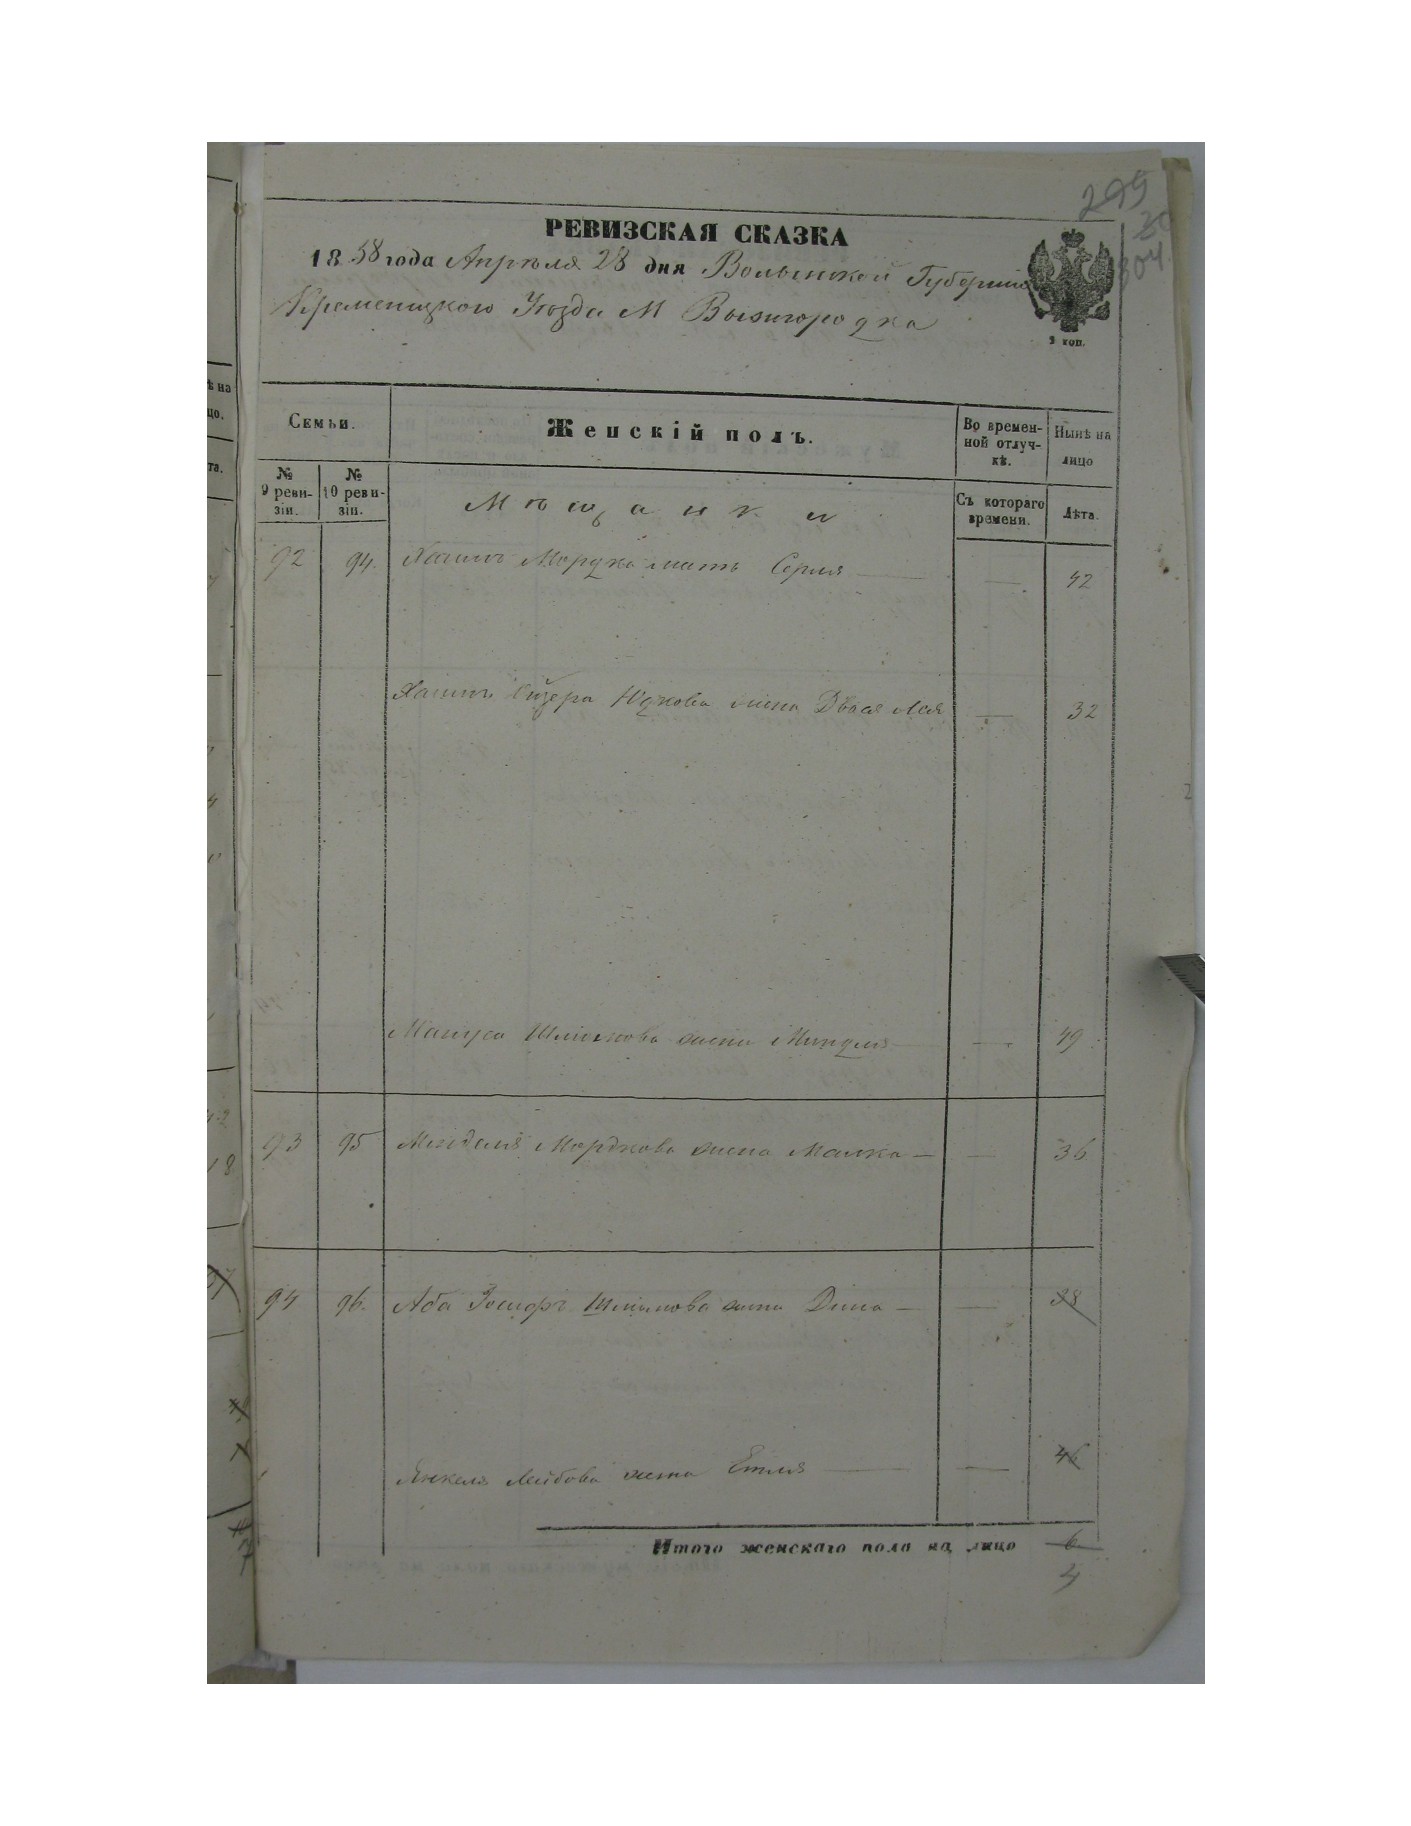 299
304
РЕВИЗСКАЯ СКАЗКА
1858 года Апрѣля 28 дня Волынской Губерніи
Кременецкого Уѣзда М Вышгородка
2 коп.
Семьи.
Женскій полъ.
Во времен-
ной отлуч-
кѣ.
Нынѣ на
лицо
№
9 реви-
зіи.
№
10 реви-
зіи.
Мѣщанки
Съ котораго
времени.
Лѣта.
92 94. Мордка мать — — 42
Юдкова жена Двося Лея — 32
Шліомова жена Миндля — — 49
93 95 Менделя Мордкова жена Малка — — 36
94 96. Аба Іосифъ Шліомова жена Дина — — 38
Янкеля Лейбова жена Етля — — 46
Итого женскаго пола на лицо 6
4